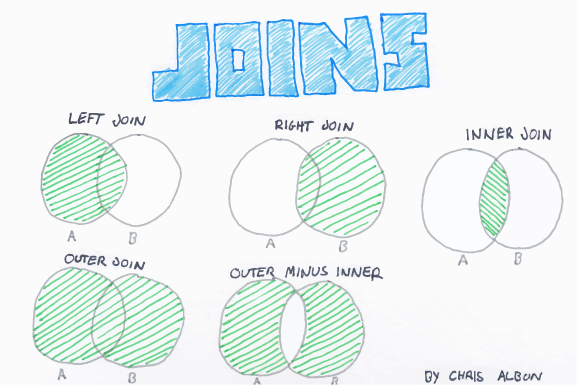 JOINS
LEFT JOIN
RIGHT JOIN
INNER JOIN
A B
A B
A B
OUTER JOIN
OUTER MINUS INNER
A B
A B
BY CHRIS ALBON